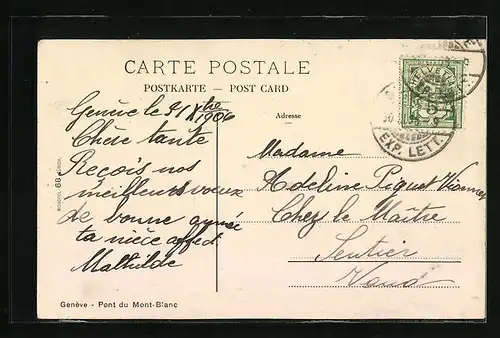 CARTE POSTALE
POSTKARTE — POST CARD
Adresse
HELVETIA
EXP. LETT.
Genève le 31 Xbre
1906
Chère tante
Reçois nos
meilleurs voeux
de bonne année
ta nièce affect.
Mathilde
Madame
Adeline Piguet
Chez le Maître
Sentier
Vaud
68
Genève - Pont du Mont-Blanc